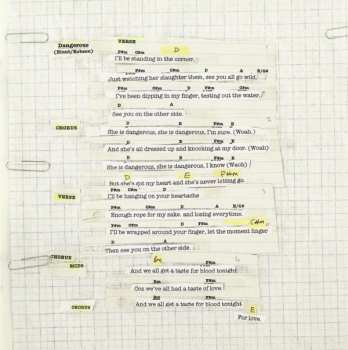 Dangerous VERSE
(Blunt/Robson) F#m G#m D
I'll be standing in the corner,
F#m G#m D A E/G#
Just watching her slaughter them, see you all go wild,
F#m G#m D F#m G#m
I've been dipping in my finger, testing out the water.
D A
See you on the other side.
CHORUS D B F#m E
She is dangerous, she is dangerous, I'm sure. (Woah.)
D B F#m E
And she's all dressed up and knocking at my door. (Woah)
D B F#m E
She is dangerous, she is dangerous, I know (Woah)
D E F#m
But she's got my heart and she's never letting go.
VERSE F#m G#m D
I'll be hanging on your heartache
F#m G#m D A E/G#
Enough rope for my sake, and losing everytime.
F#m G#m D F#m C#m
I'll be wrapped around your finger, let the moment linger
D A
Then see you on the other side.
CHORUS
MID8 F#m
And we all get a taste for blood tonight
Bm F#m
Coz we've all had a taste of love
Bm F#m
CHORUS And we all get a taste for blood tonight
E
For love.